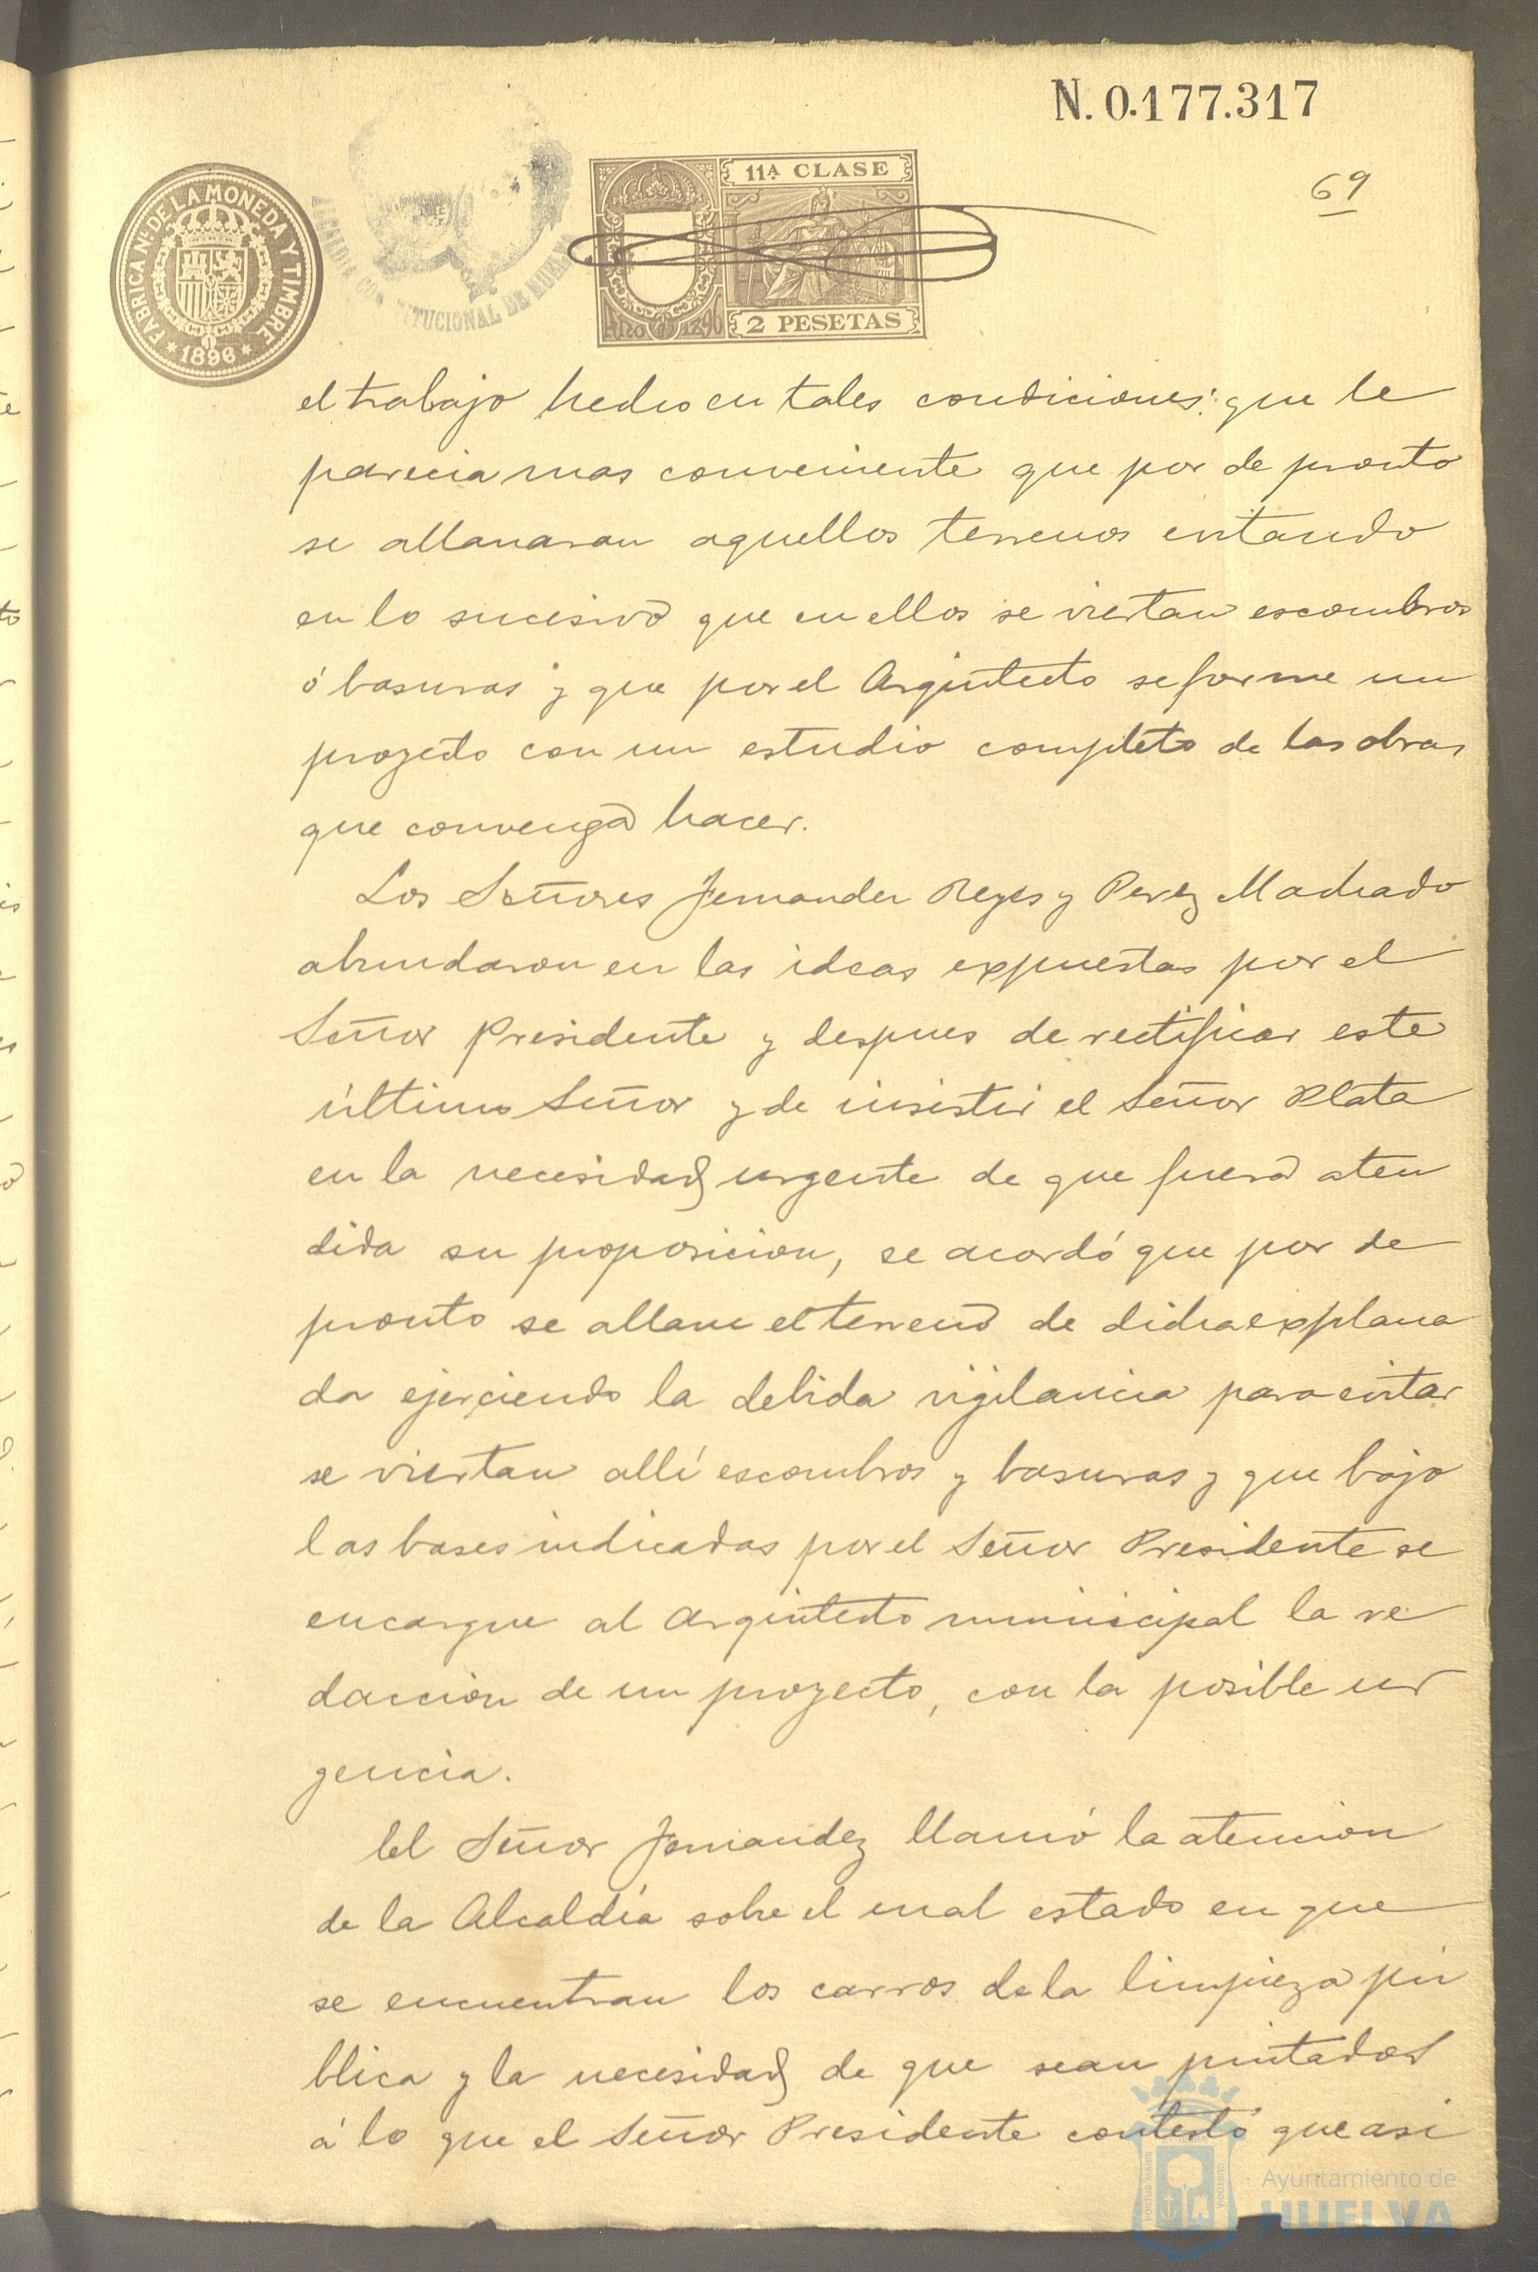 N. 0.177.317
69
FABRICA NL. DE LA MONEDA Y TIMBRE
* 1896 *
ALCALDIA CONSTITUCIONAL DE HUELVA
11A CLASE
Año 1896
2 PESETAS
el trabajo hecho en tales condiciones: que le
parecia mas conveniente que por de pronto
se allanaran aquellos terrenos evitando
en lo sucesivo que en ellos se viertan escombros
ó basuras y que por el Arquitecto se forme un
proyecto con un estudio completo de las obras
que convenga hacer.
Los Señores Fernandez Reyes y Perez Machado
abundaron en las ideas expuestas por el
Señor Presidente y despues de rectificar este
último Señor y de insistir el Señor Plata
en la necesidad urgente de que fuera aten
dida su proposicion, se acordó que por de
pronto se allane el terreno de dicha explana
da ejerciendo la debida vigilancia para evitar
se viertan allí escombros y basuras y que bajo
las bases indicadas por el Señor Presidente se
encargue al arquitecto municipal la re
daccion de un proyecto, con la posible ur
gencia.
El Señor Fernandez llamó la atencion
de la Alcaldía sobre el mal estado en que
se encuentran los carros de la limpieza pú
blica y la necesidad de que sean pintados
á lo que el Señor Presidente contestó que asi
Ayuntamiento de
HUELVA